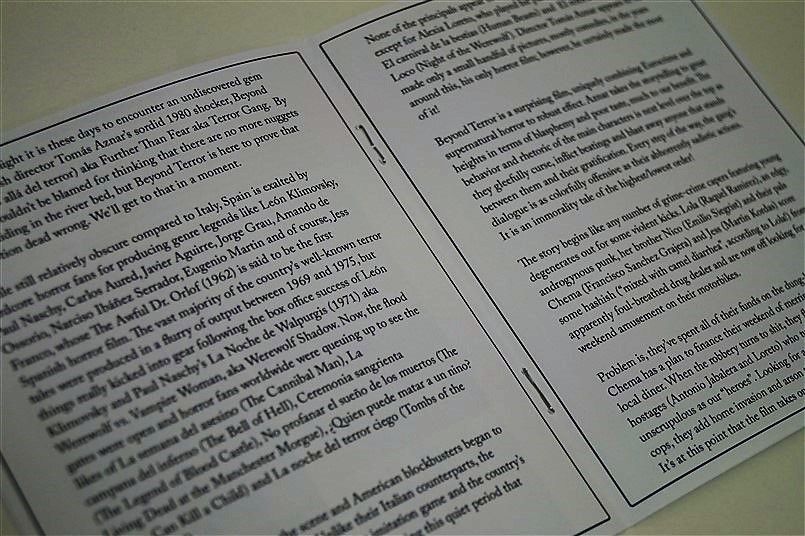 ight it is these days to encounter an undiscovered gem
sh director Tomás Aznar's sordid 1980 shocker, Beyond
allá del terror) aka Further Than Fear aka Terror Gang. By
ouldn't be blamed for thinking that there are no more nuggets
ding in the river bed, but Beyond Terror is here to prove that
tion dead wrong. We'll get to that in a moment.
le still relatively obscure compared to Italy, Spain is exalted by
rdcore horror fans for producing genre legends like León Klimovsky,
aul Naschy, Carlos Aured, Javier Aguirre, Jorge Grau, Amando de
Ossorio, Narciso Ibáñez Serrador, Eugenio Martin and of course, Jess
Franco, whose The Awful Dr. Orlof (1962) is said to be the first
Spanish horror film. The vast majority of the country's well-known terror
tales were produced in a flurry of output between 1969 and 1975, but
things really kicked into gear following the box office success of León
Klimovsky and Paul Naschy's La Noche de Walpurgis (1971) aka
Werewolf vs. Vampire Woman, aka Werewolf Shadow. Now, the flood
gates were open and horror fans worldwide were queuing up to see the
likes of La semana del asesino (The Cannibal Man), La
campana del infierno (The Bell of Hell), Ceremonia sangrienta
(The Legend of Blood Castle), No profanar el sueño de los muertos (The
Living Dead at the Manchester Morgue), ¿Quien puede matar a un nino?
Can Kill a Child) and La noche del terror ciego (Tombs of the
the scene and American blockbusters began to
nlike their Italian counterparts, the
imitation game and the country's
ng this quiet period that
None of the principals appear
except for Alexia Loreto, who played
El carnaval de la bestias (Human Beasts) and El
Loco (Night of the Werewolf). Director Tomás Aznar
made only a small handful of pictures, mostly comedies, in the
around this, his only horror film, however, he certainly made the most
of it!
Beyond Terror is a surprising film, uniquely combining Eurocrime and
supernatural horror to robust effect. Aznar takes the storytelling to great
heights in terms of blasphemy and poor taste, much to our benefit. The
behavior and rhetoric of the main characters is next level over the top as
they gleefully curse, inflict beatings and blast away anyone that stands
between them and their gratification. Every step of the way, the gang's
dialogue is as colorfully offensive as their abhorrently sadistic actions.
It is an immorality tale of the highest/lowest order!
The story begins like any number of grime-crime capers featuring young
degenerates out for some violent kicks. Lola (Raquel Ramírez), an edgy,
androgynous punk, her brother Nico (Emilio Siegrist) and their pals
Chema (Francisco Sanchez Grajera) and Jess (Martin Kordas) score
some hashish ("mixed with camel diarrhea" according to Lola!) from
apparently foul-breathed drug dealer and are now off looking for
weekend amusement on their motorbikes.
Problem is, they've spent all of their funds on the dung
Chema has a plan to finance their weekend of
local diner. When the robbery turns to shit, they
hostages (Antonio Jabalera and Loreto) who
unscrupulous as our "heroes". Looking for
cops, they add home invasion and arson
It's at this point that the film takes